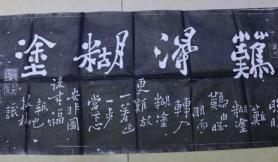 難得糊塗
明
難
糊塗
難由聰
明而
轉入
糊塗
更難放
一著退
一步
當下心
安非圖
後來福
報也
板橋
識